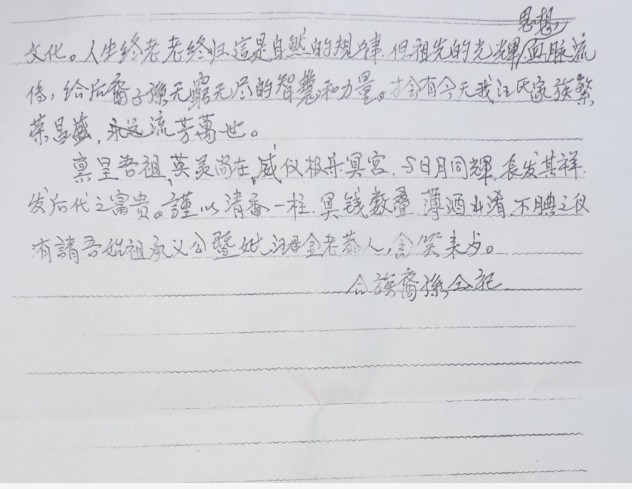 思想
文化。人生终老老终归這是自然的規律,但祖先的光輝/血脉流
传,给后裔子孫无窮无尽的智慧和力量。才会有今天我汪氏家族繁
荣昌盛,永远流芳萬世。
禀呈吾祖,英灵尚在,威仪极乐冥宫,与日月同輝,長发其祥,
发后代之富贵。謹以清香一柱,冥钱数叠,薄酒出淆,不腆之仪
有請吾始祖承义公暨妣汪母金老恭人,含笑来为。
合族裔孫仝祀